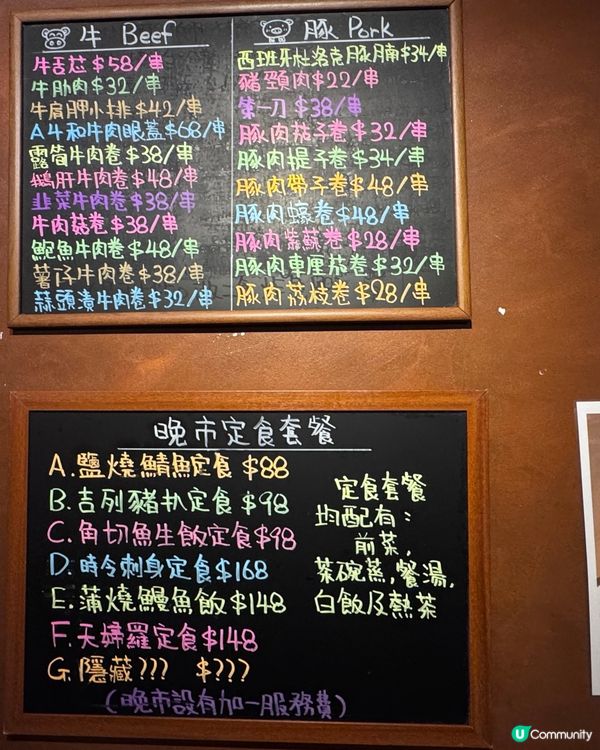 牛 Beef
牛舌芯$58/串
牛肋肉$32/串
牛肩胛小排$42/串
A4和牛肉眼蓋$68/串
露筍牛肉卷$38/串
鵝肝牛肉卷$48/串
韭菜牛肉卷$38/串
牛肉菇卷$38/串
鮑魚牛肉卷$48/串
薯仔牛肉卷$38/串
蒜頭漬牛肉卷$32/串
豚 Pork
西班牙杜洛克豚腩$34/串
豬頸肉$22/串
第一刀$38/串
豚肉茄子卷$32/串
豚肉提子卷$34/串
豚肉帶子卷$48/串
豚肉蠔卷$48/串
豚肉紫蘇卷$28/串
豚肉車厘茄卷$32/串
豚肉荔枝卷$28/串
晚市定食套餐
A.鹽燒鯖魚定食$88
B.吉列豬扒定食$98
C.角切魚生飯定食$98
D.時令刺身定食$168
E.蒲燒鰻魚飯$148
F.天婦羅定食$148
G.隱藏??? $???
(晚市設有加一服務費)
定食套餐
均配有:
前菜,
茶碗蒸,餐湯,
白飯及熱茶
U Community